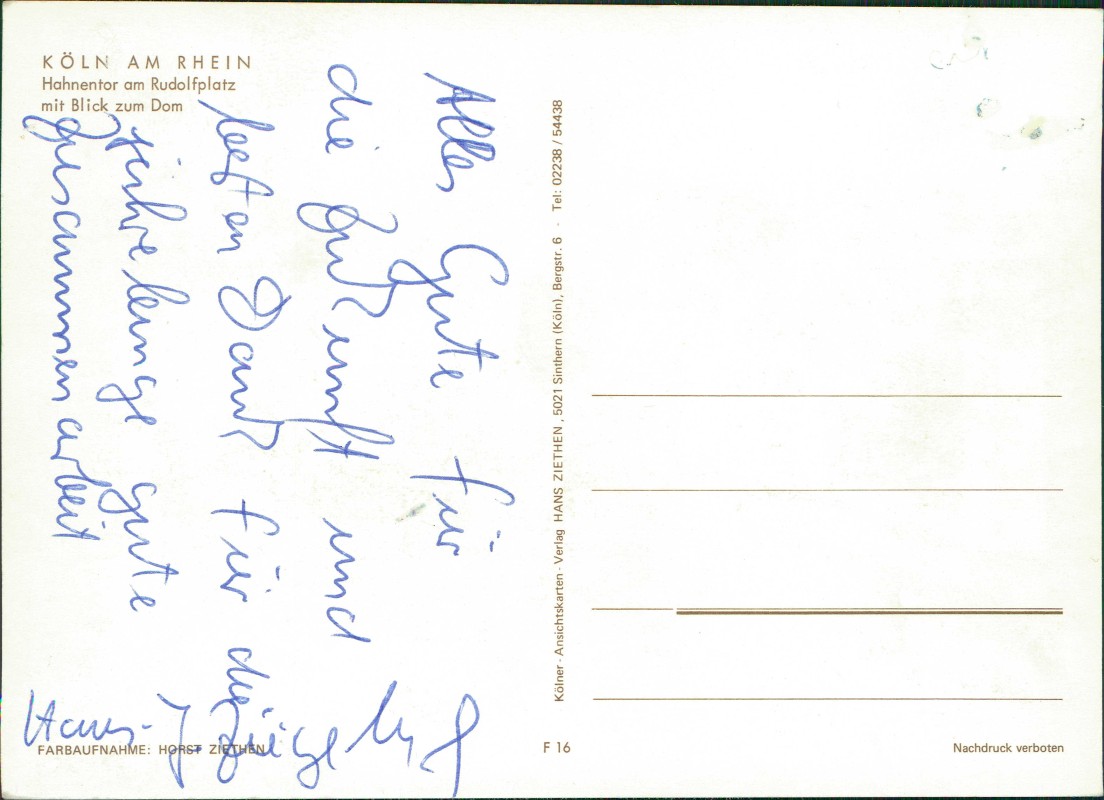 KÖLN AM RHEIN
Hahnentor am Rudolfplatz
mit Blick zum Dom
Alles Gute für
die Zukunft und
besten Dank für die
jahrelange gute
Zusammenarbeit
Hans-J
Kölner-Ansichtskarten-Verlag HANS ZIETHEN, 5021 Sinthern (Köln), Bergstr. 6 · Tel: 02238 / 54438
FARBAUFNAHME: HORST ZIETHEN
F 16
Nachdruck verboten